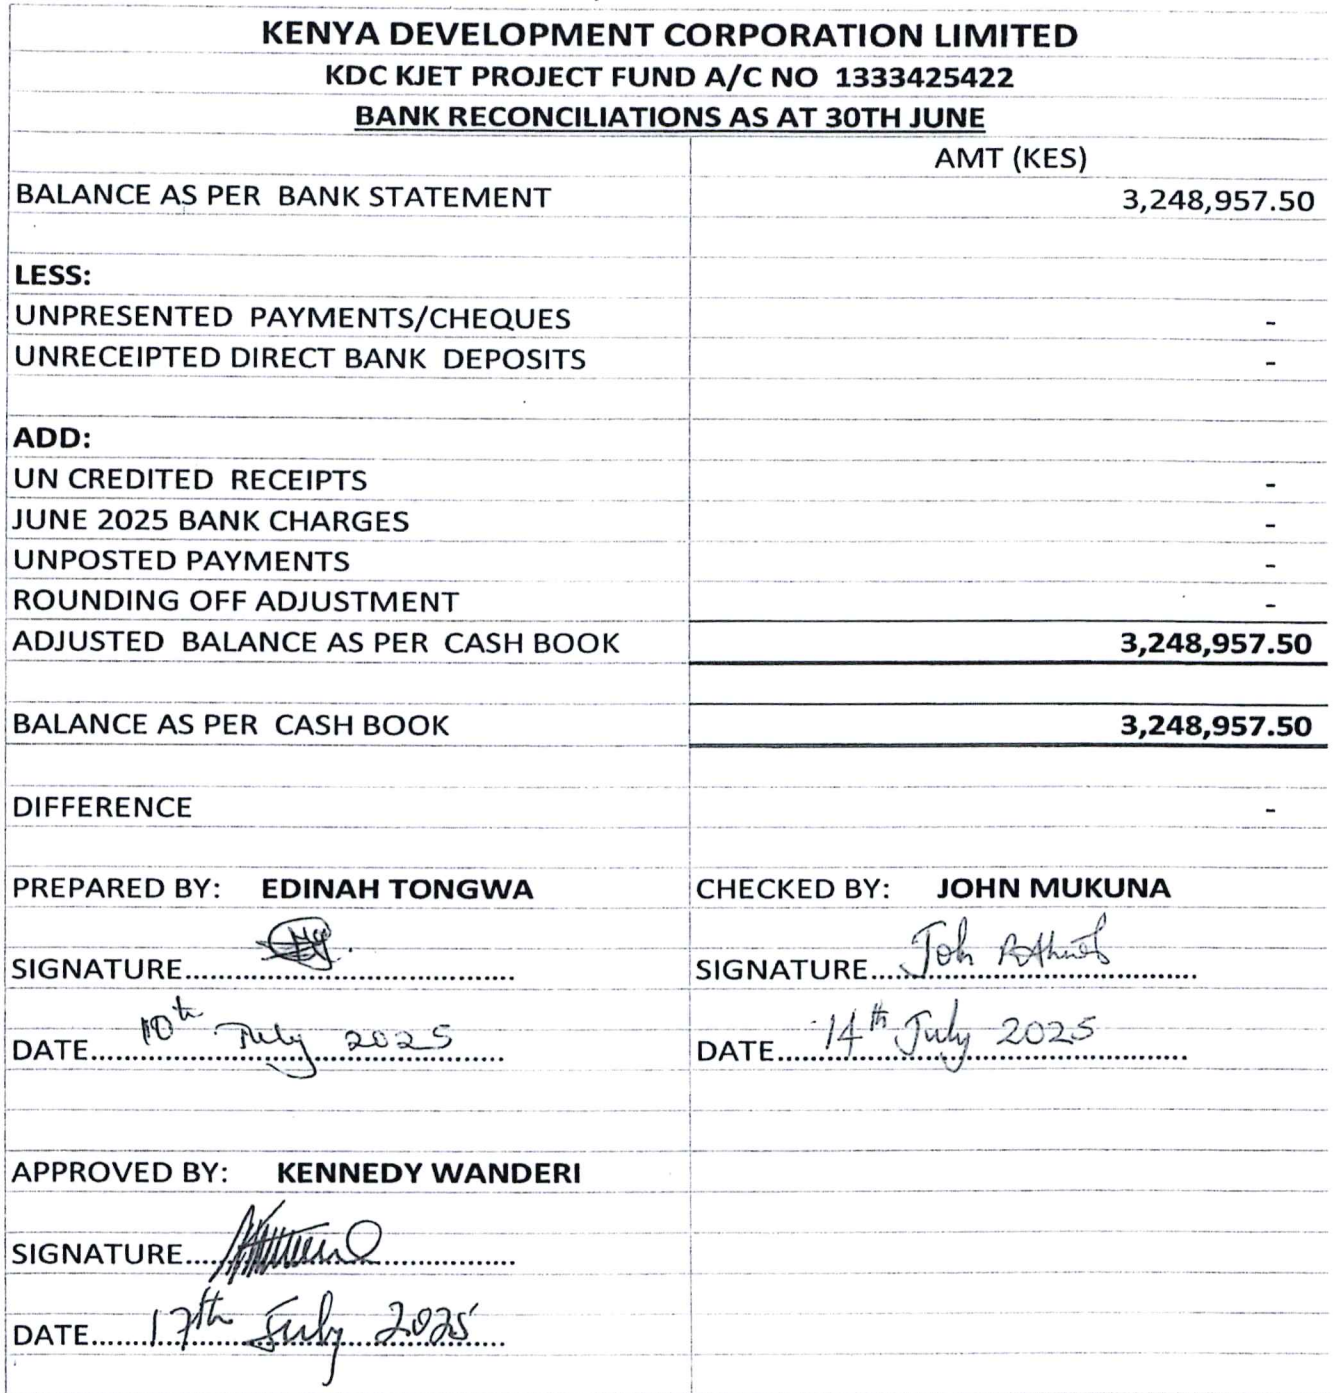 KENYA DEVELOPMENT CORPORATION LIMITED
KDC KJET PROJECT FUND A/C NO 1333425422
BANK RECONCILIATIONS AS AT 30TH JUNE
AMT (KES)
BALANCE AS PER BANK STATEMENT 3,248,957.50
LESS:
UNPRESENTED PAYMENTS/CHEQUES -
UNRECEIPTED DIRECT BANK DEPOSITS -
ADD:
UN CREDITED RECEIPTS -
JUNE 2025 BANK CHARGES -
UNPOSTED PAYMENTS -
ROUNDING OFF ADJUSTMENT -
ADJUSTED BALANCE AS PER CASH BOOK 3,248,957.50
BALANCE AS PER CASH BOOK 3,248,957.50
DIFFERENCE -
PREPARED BY: EDINAH TONGWA CHECKED BY: JOHN MUKUNA
SIGNATURE.................................... SIGNATURE....................................
DATE....10th July 2025.... DATE....14th July 2025....
APPROVED BY: KENNEDY WANDERI
SIGNATURE....................................
DATE....17th July 2025....